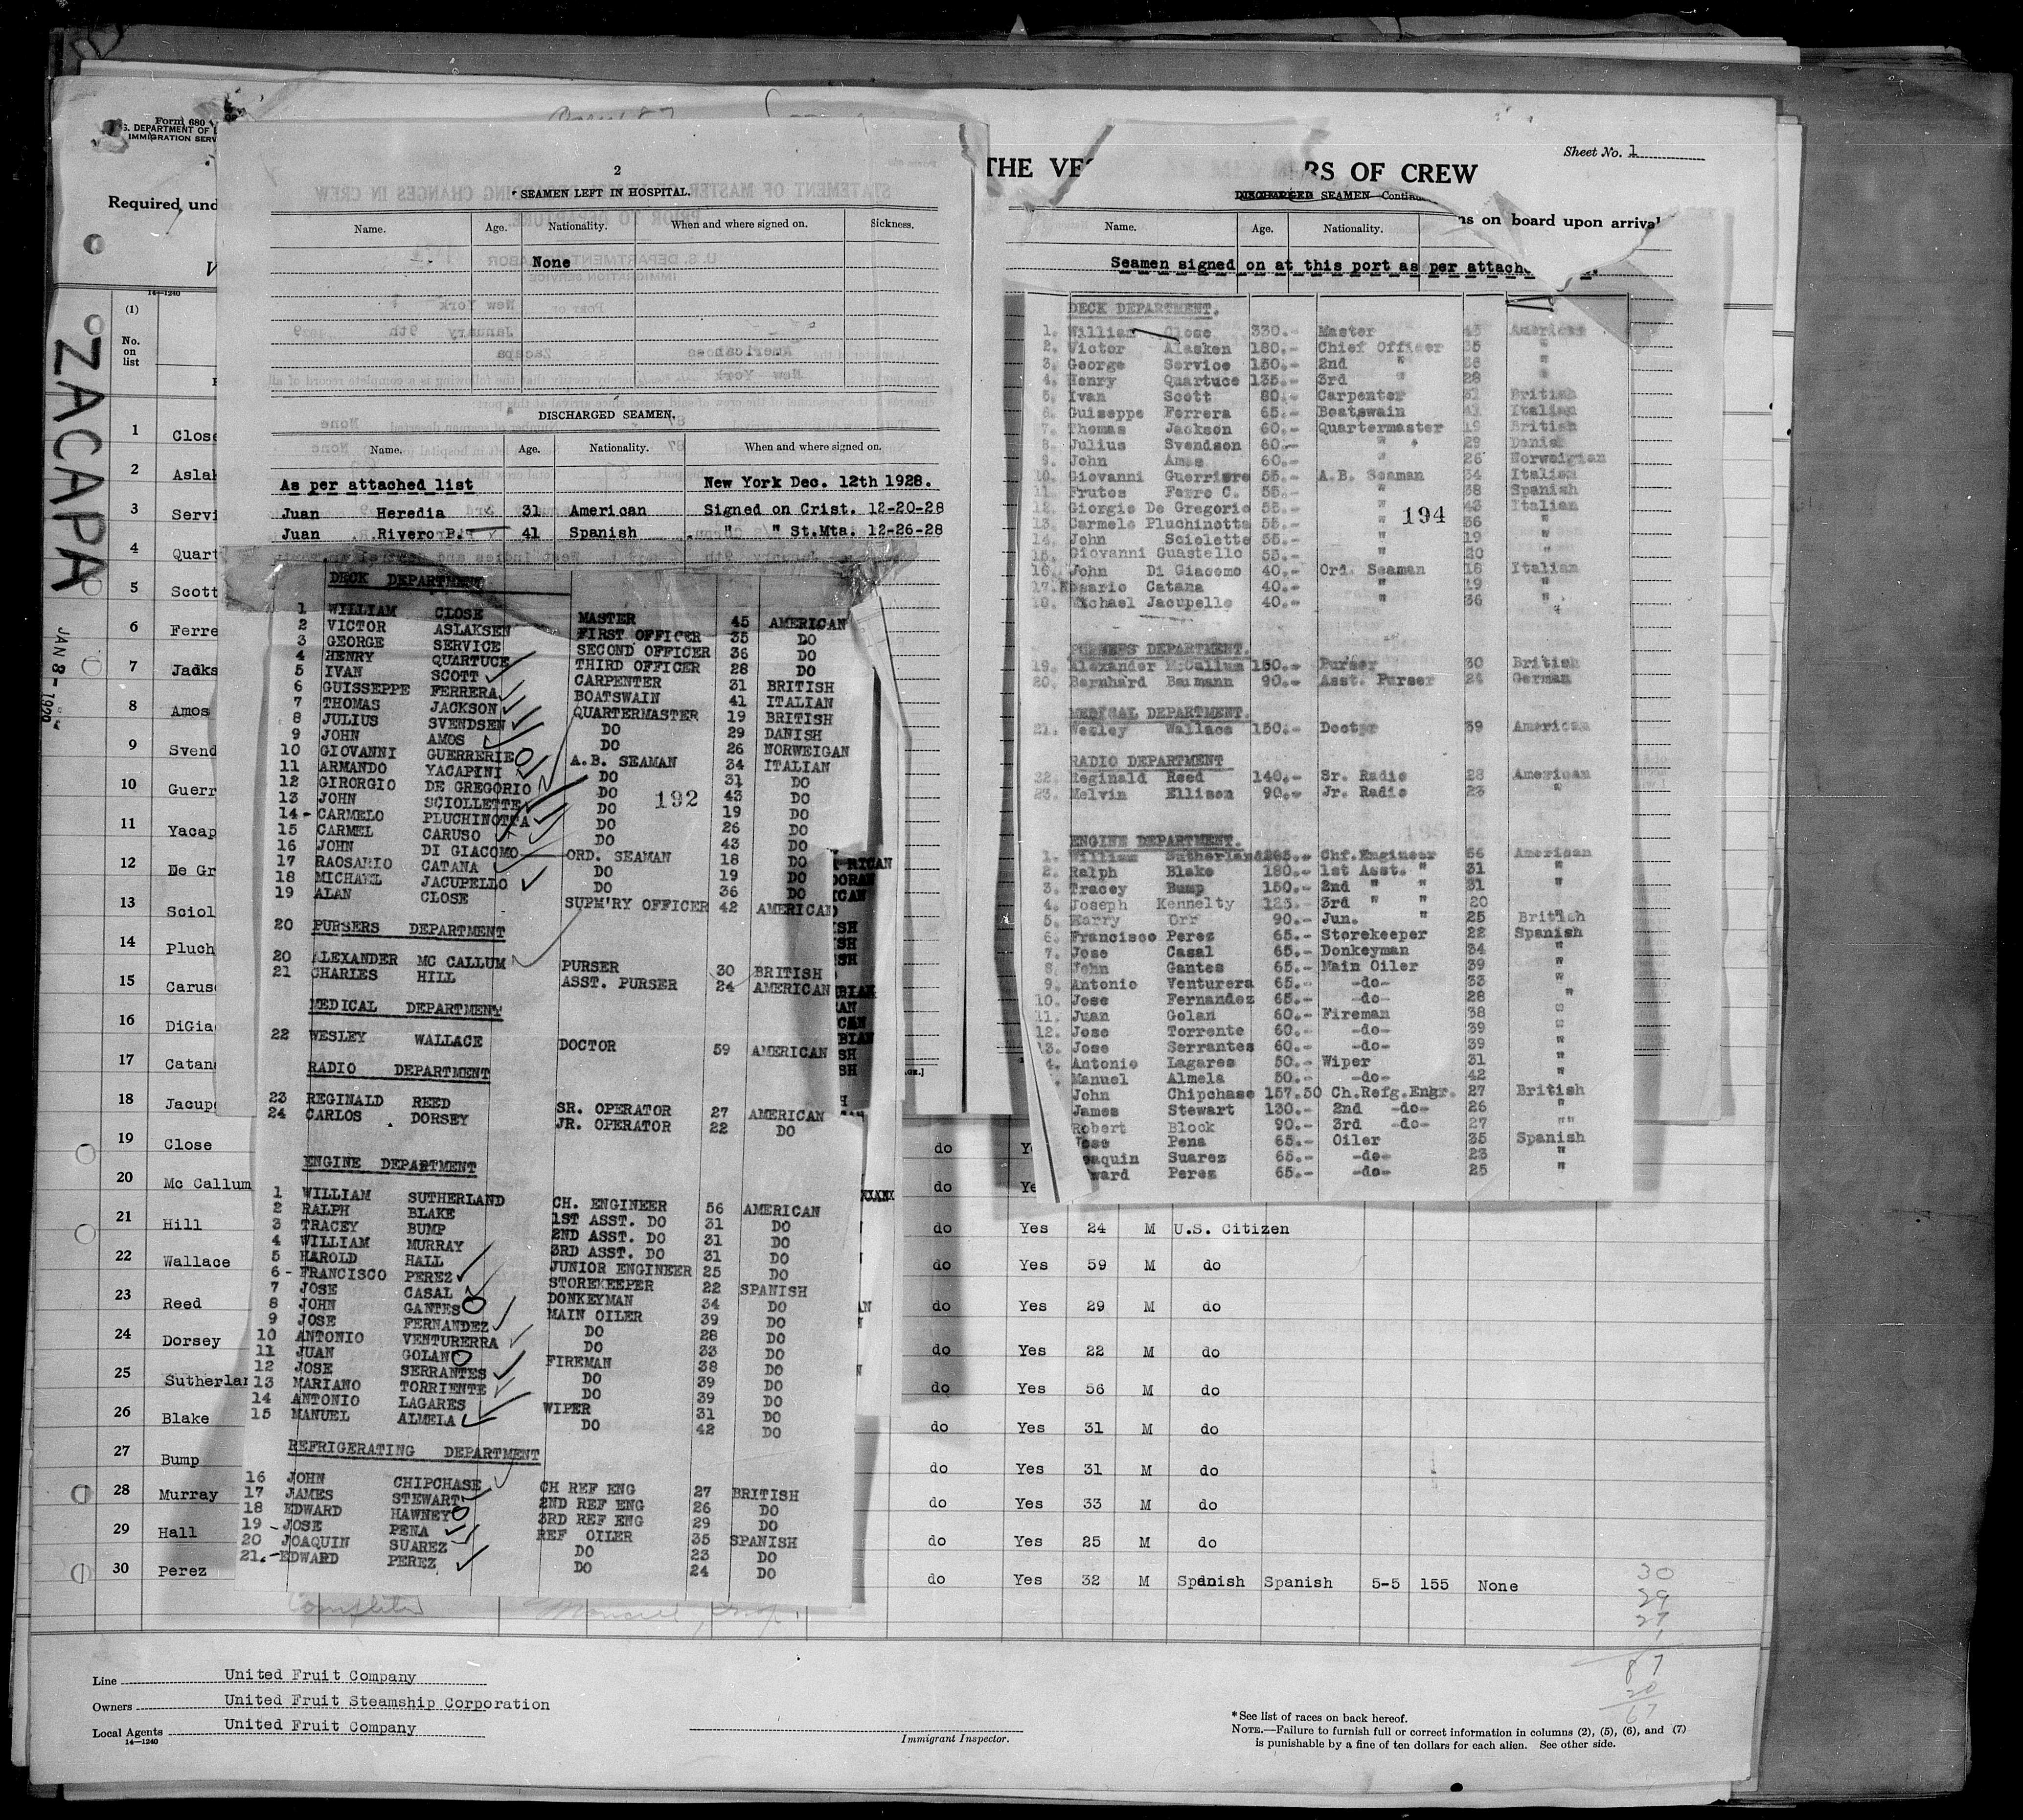 Form 680
U.S. DEPARTMENT OF L
IMMIGRATION SERV
Required und
V
14—1240
ZACAPA
JAN 8-1929
(1)
No. on list
1 Close
2 Aslak
3 Servi
4 Quart
5 Scott
6 Ferre
7 Jadks
8 Amos
9 Svend
10 Guerr
11 Yacap
12 De Gr
13 Sciol
14 Pluch
15 Carus
16 DiGia
17 Catan
18 Jacup
19 Close do Ye
20 Mc Callum do Ye
21 Hill do Yes 24 M U.S. Citizen
22 Wallace do Yes 59 M do
23 Reed do Yes 29 M do
24 Dorsey do Yes 22 M do
25 Sutherlan do Yes 56 M do
26 Blake do Yes 31 M do
27 Bump do Yes 31 M do
28 Murray do Yes 33 M do
29 Hall do Yes 25 M do
30 Perez do Yes 32 M Spanish Spanish 5-5 155 None
2
SEAMEN LEFT IN HOSPITAL.
Name. Age. Nationality. When and where signed on. Sickness.
None
DISCHARGED SEAMEN.
Name. Age. Nationality. When and where signed on.
As per attached list New York Dec. 12th 1928.
Juan Heredia 31 American Signed on Crist. 12-20-28
Juan Rivero B. 41 Spanish " " St.Mta. 12-26-28
DECK DEPARTMENT
1 WILLIAM CLOSE MASTER 45 AMERICAN
2 VICTOR ASLAKSEN FIRST OFFICER 35 DO
3 GEORGE SERVICE SECOND OFFICER 36 DO
4 HENRY QUARTUCE THIRD OFFICER 28 DO
5 IVAN SCOTT CARPENTER 31 BRITISH
6 GUISSEPPE FERRERA BOATSWAIN 41 ITALIAN
7 THOMAS JACKSON QUARTERMASTER 19 BRITISH
8 JULIUS SVENDSEN DO 29 DANISH
9 JOHN AMOS DO 26 NORWEIGAN
10 GIOVANNI GUERRERIE A.B. SEAMAN 34 ITALIAN
11 ARMANDO YACAPINI DO 31 DO
12 GIRORGIO DE GREGORIO DO 43 DO
13 JOHN SCIOLLETTE DO 19 DO
14- CARMELO PLUCHINOTTA DO 26 DO
15 CARMEL CARUSO DO 43 DO
16 JOHN DI GIACOMO ORD. SEAMAN 18 DO
17 RAOSARIO CATANA DO 19 DO
18 MICHAEL JACUPELLO DO 36 DO
19 ALAN CLOSE SUPM'RY OFFICER 42 AMERICAN
192
20 PURSERS DEPARTMENT
20 ALEXANDER MC CALLUM PURSER 30 BRITISH
21 CHARLES HILL ASST. PURSER 24 AMERICAN
MEDICAL DEPARTMENT
22 WESLEY WALLACE DOCTOR 59 AMERICAN
RADIO DEPARTMENT
23 REGINALD REED SR. OPERATOR 27 AMERICAN
24 CARLOS DORSEY JR. OPERATOR 22 DO
ENGINE DEPARTMENT
1 WILLIAM SUTHERLAND CH. ENGINEER 56 AMERICAN
2 RALPH BLAKE 1ST ASST. DO 31 DO
3 TRACEY BUMP 2ND ASST. DO 31 DO
4 WILLIAM MURRAY 3RD ASST. DO 31 DO
5 HAROLD HALL JUNIOR ENGINEER 25 DO
6- FRANCISCO PEREZ STOREKEEPER 22 SPANISH
7 JOSE CASAL DONKEYMAN 34 DO
8 JOHN GANTES MAIN OILER 39 DO
9 JOSE FERNANDEZ DO 28 DO
10 ANTONIO VENTURERRA DO 33 DO
11 JUAN GOLAN FIREMAN 38 DO
12 JOSE SERRANTES DO 39 DO
13 MARIANO TORRIENTE DO 39 DO
14 ANTONIO LAGARES WIPER 31 DO
15 MANUEL ALMELA DO 42 DO
REFRIGERATING DEPARTMENT
16 JOHN CHIPCHASE CH REF ENG 27 BRITISH
17 JAMES STEWART 2ND REF ENG 26 DO
18 EDWARD HAWNEY 3RD REF ENG 29 DO
19 -JOSE PENA REF OILER 35 SPANISH
20 JOAQUIN SUAREZ DO 23 DO
21.-EDWARD PEREZ DO 24 DO
THE VES RS OF CREW
Sheet No. 1
DISCHARGED SEAMEN—Continu
ns on board upon arrival
Name. Age. Nationality.
Seamen signed on at this port as per attache
DECK DEPARTMENT.
1. William Close 330.- Master 45 American
2. Victor Alasken 180.- Chief Officer 35 "
3. George Service 150.- 2nd " 26 "
4. Henry Quartuce 135.- 3rd " 28 "
5. Ivan Scott 80.- Carpenter 31 British
6. Guiseppe Ferrera 65.- Boatswain 41 Italian
7. Thomas Jackson 60.- Quartermaster 19 British
8. Julius Svendson 60.- " 29 Danish
9. John Amos 60.- " 26 Norweigian
10. Giovanni Guerriere 55.- A.B. Seaman 34 Italian
11. Frutos Ferro C. 55.- " 38 Spanish
12. Giorgio De Gregorio 55.- " 43 Italian
13. Carmelo Pluchinotta 55.- " 36 "
14. John Sciolette 55.- " 19 "
15. Giovanni Guastello 55.- " 20 "
16. John Di Giacomo 40.- Ord. Seaman 18 Italian
17. Rosario Catana 40.- " 19 "
18. Michael Jacupello 40.- " 36 "
194
PURSERS DEPARTMENT.
19. Alexander McCallum 150.- Purser 30 British
20. Bernhard Baumann 90.- Asst. Purser 24 German
MEDICAL DEPARTMENT.
21. Wesley Wallace 150.- Doctor 59 American
RADIO DEPARTMENT
22. Reginald Reed 140.- Sr. Radio 28 American
23. Melvin Ellison 90.- Jr. Radio 23 "
ENGINE DEPARTMENT.
1. William Sutherland 265.- Chf.Engineer 56 American
2. Ralph Blake 180.- 1st Asst. " 31 "
3. Tracey Bump 150.- 2nd " " 31 "
4. Joseph Kennelty 125.- 3rd " " 20
5. Harry Orr 90.- Jun. " 25 British
6. Francisco Perez 65.- Storekeeper 22 Spanish
7. Jose Casal 65.- Donkeyman 34 "
8. John Gantes 65.- Main Oiler 39 "
9. Antonio Venturera 65.- -do- 33 "
10. Jose Fernandez 65.- -do- 28 "
11. Juan Golan 60.- Fireman 38 "
12. Jose Torrente 60.- -do- 39 "
13. Jose Serrantes 60.- -do- 39 "
4. Antonio Lagares 50.- Wiper 31 "
Manuel Almela 50.- -do- 42 "
John Chipchase 157.50 Ch.Refg.Engr. 27 British
James Stewart 130.- 2nd -do- 26 "
Robert Block 90.- 3rd -do- 27 ""
Jose Pena 65.- Oiler 35 Spanish
oaquin Suarez 65.- -do- 23 "
ward Perez 65.- -do- 25 "
30
29
27
1
87
20
67
Line United Fruit Company
Owners United Fruit Steamship Corporation
Local Agents United Fruit Company
14—1240
Immigrant Inspector.
*See list of races on back hereof.
NOTE.—Failure to furnish full or correct information in columns (2), (5), (6), and (7)
is punishable by a fine of ten dollars for each alien. See other side.